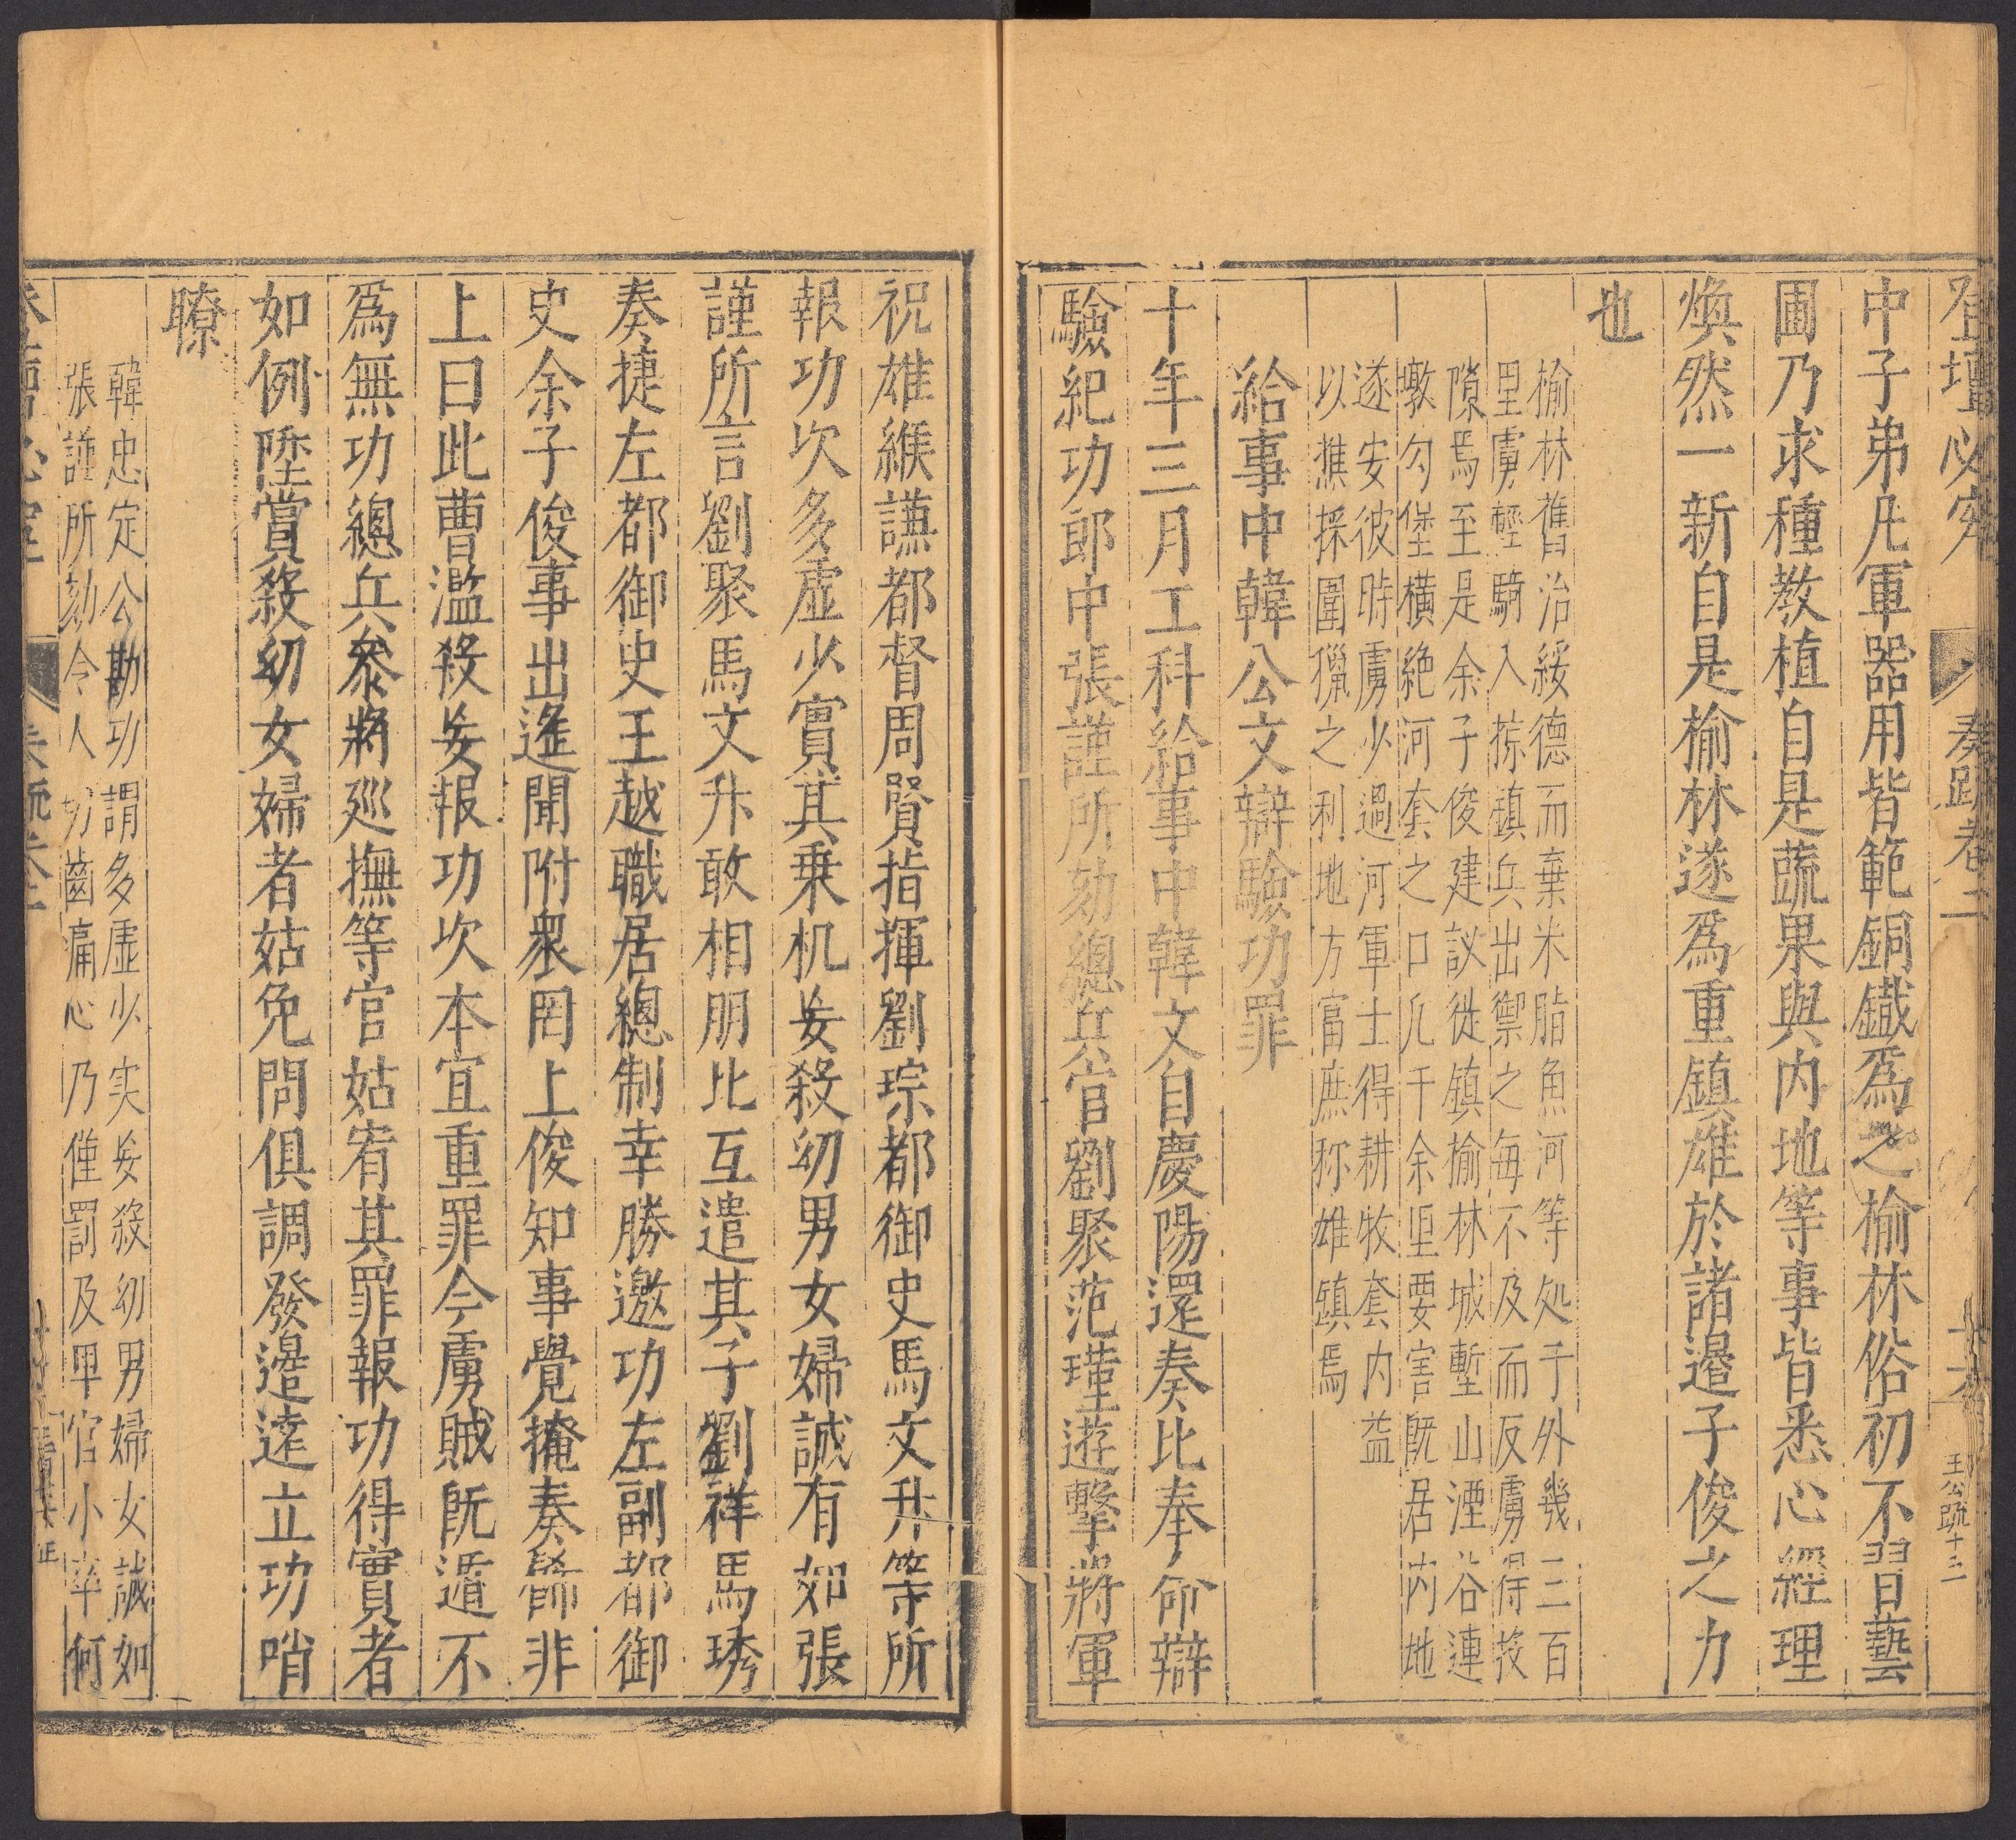 登壇必究 奏疏卷二 王公疏十二
中子弟凡軍器用皆範銅鐵爲之榆林俗初不習藝
圃乃求種教植自是蔬果與内地等事皆悉心經理
煥然一新自是榆林遂爲重鎮雄於諸邊子俊之力
也
榆林舊治綏德而棄米脂魚河等処于外幾三百
里虜輕騎入掠鎮兵出禦之每不及而反虜得投
隙焉至是余子俊建議徙鎮榆林城塹山湮谷連
墩勾堡橫絶河套之口凡千余里要害既居内地
遂安彼時虜少過河軍士得耕牧套内益
以樵採圍獵之利地方富庶称雄鎮焉
給事中韓公文辯驗功罪
十年三月工科給事中韓文自慶陽還奏比奉命辯
驗紀功郎中張謹所劾總兵官劉聚范瑾遊擊將軍
祝雄緱謙都督周賢指揮劉琮都御史馬文升等所
報功次多虛少實其乗机妄殺幼男女婦誠有如張
謹所言劉聚馬文升敢相朋比互遣其子劉祥馬琇
奏捷左都御史王越職居總制幸勝邀功左副都御
史余子俊事出遙聞附衆罔上俊知事覺掩奏飾非
上曰此曹濫殺妄報功次本宜重罪今虜賊既遁不
爲無功總兵叅將廵撫等官姑宥其罪報功得實者
如例陞賞殺幼女婦者姑免問俱調發邊逺立功哨
瞭
韓忠定公勘功謂多虛少实妄殺幼男婦女誠如
張謹所劾令人切齒痛心乃僅罰及甲官小卒何